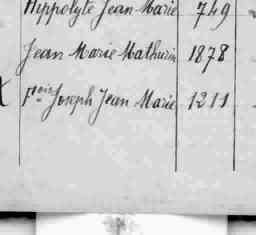 Hippolyte Jean Marie 749
Jean Marie Mathurin 1878
Fçois Joseph Jean Marie 1211